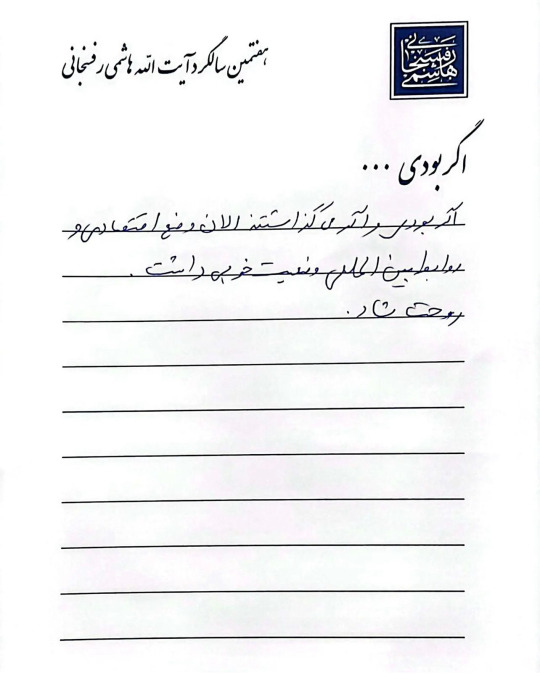 هفتمین سالگرد آیت الله هاشمی رفسنجانی
هاشمی رفسنجانی
اگر بودی ...
اگر بودی و اگر می گذاشتند الان وضع اقتصادی و
روابط بین المللی وضعیت خوبی داشت .
روحت شاد .